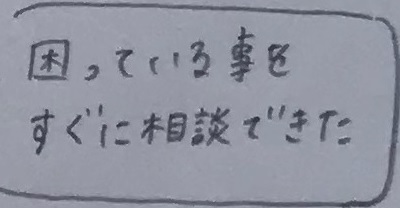 困っている事を
すぐに相談できた